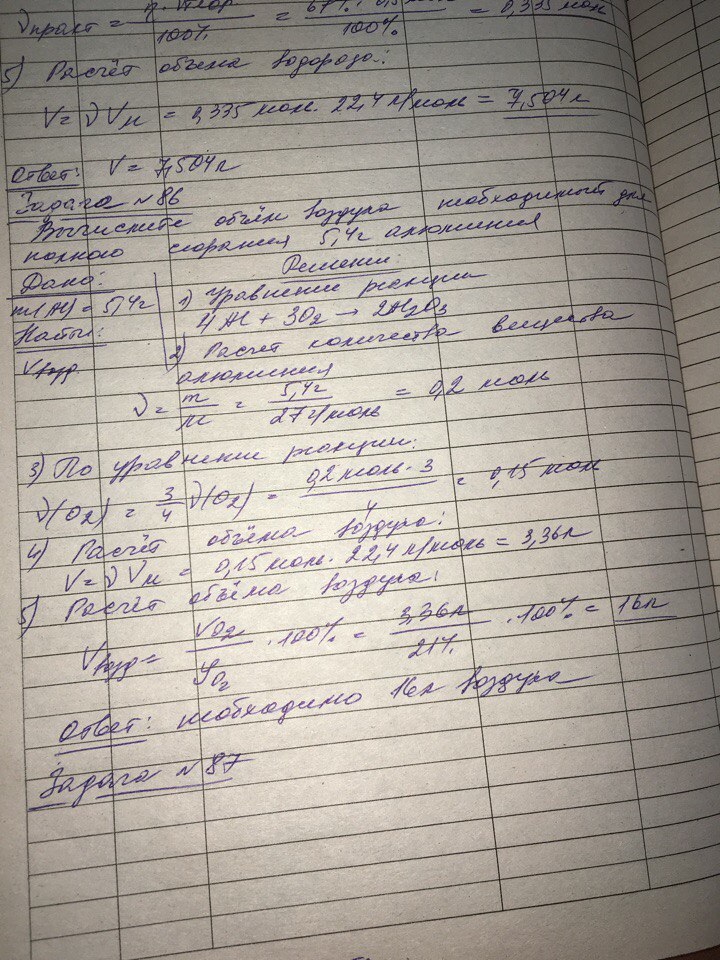 νпракт = η·νтеор. / 100% = 67%·0,5моль / 100% = 0,335 моль
5) Расчёт объёма водорода:
V = ν Vм = 0,335 моль · 22,4 л/моль = 7,504 л
Ответ: V = 7,504 л
Задача №86
Вычислите объём воздуха необходимый для
полного сгорания 5,4г алюминия
Дано: Решение:
m(Al) = 5,4г 1) Уравнение реакции
Найти: 4Al + 3O2 → 2Al2O3
Vвозд 2) Расчет количества вещества
алюминия
ν = m/M = 5,4г / 27 г/моль = 0,2 моль
3) По уравнении реакции:
ν(O2) = 3/4 ν(O2) = 0,2 моль · 3 / 4 = 0,15 моль
4) Расчёт объёма воздуха:
V = ν Vм = 0,15 моль · 22,4 л/моль = 3,36л
5) Расчёт объёма воздуха:
Vвозд = VO2 / φO2 · 100% = 3,36л / 21% · 100% = 16л
Ответ: необходимо 16л воздуха
Задача №87